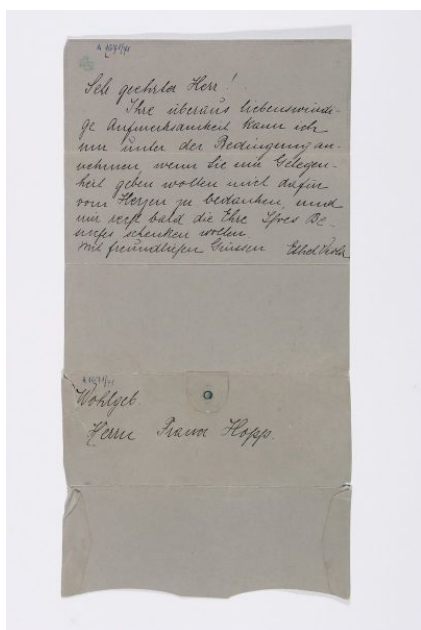 A 1671/71
Sehr geehrter Herr!
Ihre überaus liebenswürdi-
ge Aufmerksamkeit kann ich
nur unter der Bedingung an-
nehmen wenn Sie mir Gelegen-
heit geben wollen mich dafür
vom Herzen zu bedanken, und
mir recht bald die Ehre Ihres Be-
suches schenken wollen
Mit freundlichen Grüssen Ethel
A 1671/71
Wohlgeb.
Herrn Franz Hopp.